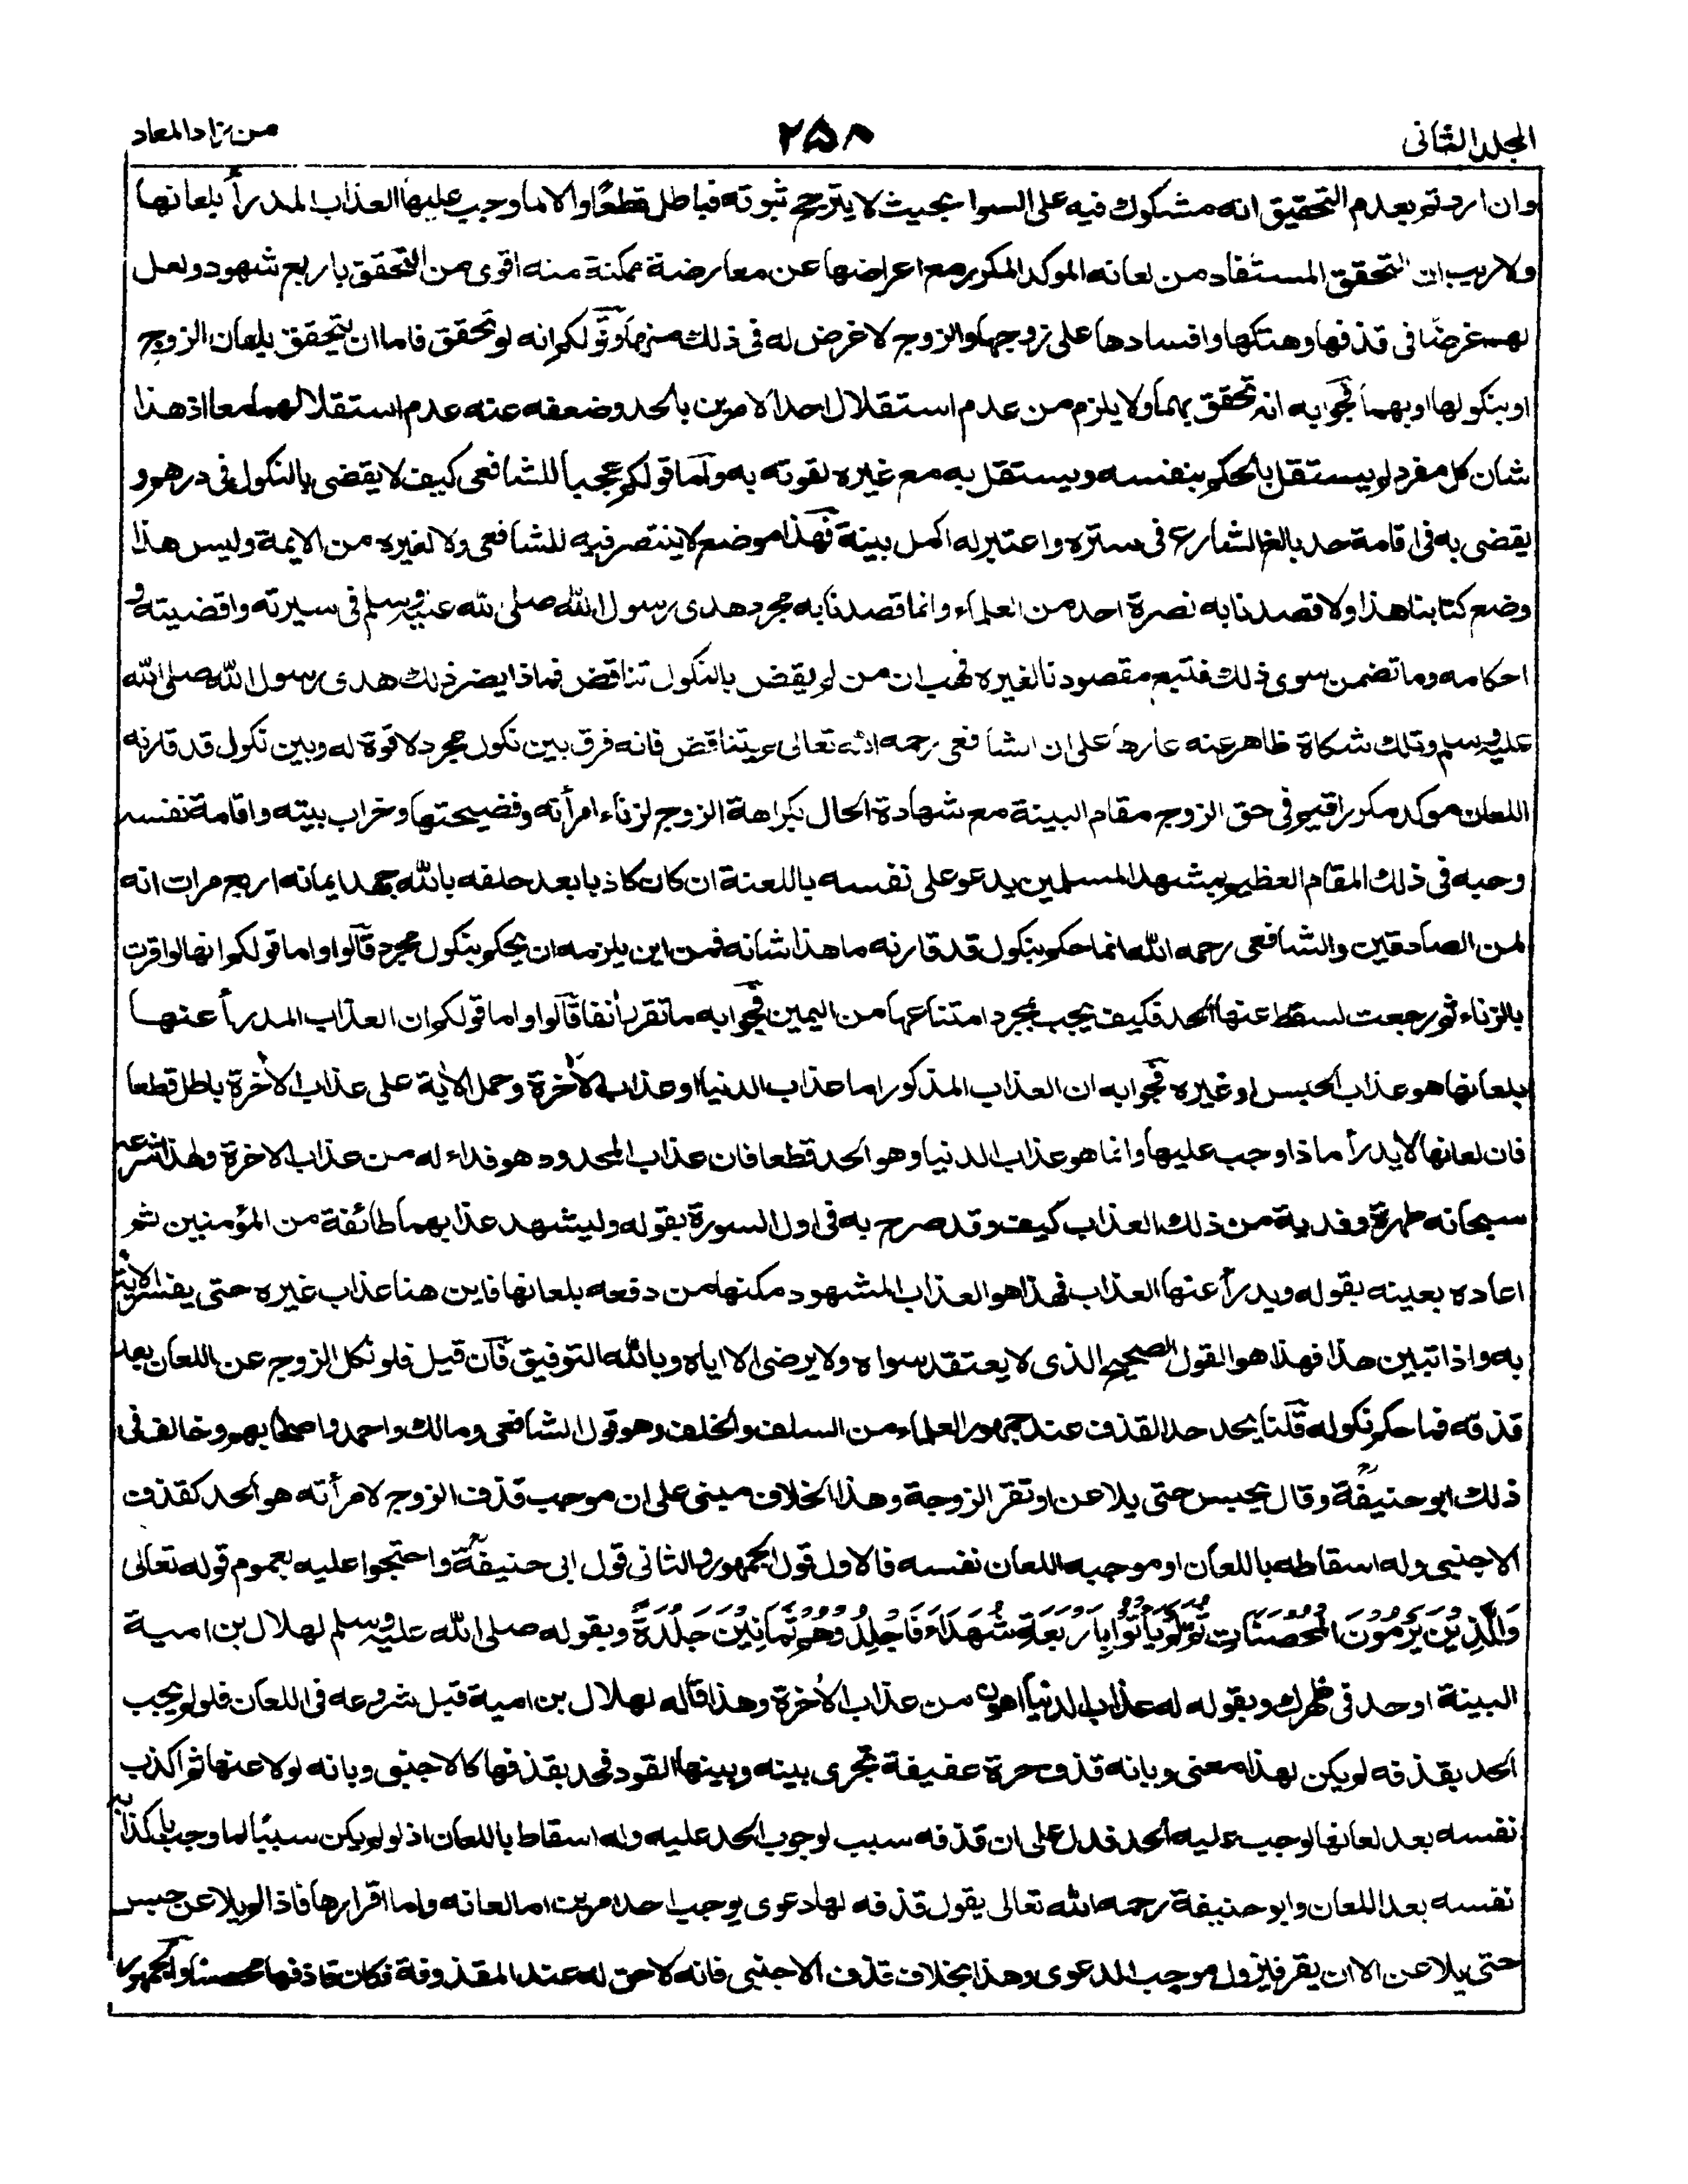 المجلد الثانی
۲۵۸
من زاد المعاد
وان اردتم بعدم التحقيق انه مشكوك فيه على السوا بحيث لا يترجح ثبوته فباطل قطعًا والا لما وجب عليها العذاب المدرأ بلعانها
ولا ريب ان التحقق المستفاد من لعانه الموكد المكرر مع اعراضها عن معارضة ممكنة منه اقوى من التحقق باربع شهود ولعل
لهم غرضًا فى قذفها وهتكها وافسادها على زوجها والزوج لا غرض له فى ذلك منها وقولكم انه لو تحقق فاما ان يتحقق بلعان الزوج
او بنكولها او بهما فجوابه انه تحقق بهما ولا يلزم من عدم استقلال احد الامرين بالحد وضعفه عنه عدم استقلالهما معا اذ هذا
شان كل مفرد لم يستقل بالحكم بنفسه ويستقل به مع غيره لقوته به واما قولكم عجبا للشافعى كيف لا يقضى بالنكول فى درهم و
يقضى به فى اقامة حد بالغ الشارع فى ستره واعتبر له اكمل بينة فهذا موضع لا ينتصر فيه للشافعى ولا لغيره من الايمة وليس هذا
وضع كتابنا هذا ولا قصدنا به نصرة احد من العلماء وانما قصدنا به مجرد هدى رسول الله صلى الله عليه وسلم فى سيرته واقضيته و
احكامه وما تضمن سوى ذلك فتبع مقصودنا لغيره فهب ان من لم يقض بالنكول تناقض فماذا يضر ذلك هدى رسول الله صلى الله
عليه وسلم وتلك شكاة ظاهر عنه عارها على ان الشافعى رحمه الله تعالى لم يتناقض فانه فرق بين نكول مجرد لا قوة له وبين نكول قد قارنه
اللعان موكد مكرر اقيم فى حق الزوج مقام البينة مع شهادة الحال بكراهة الزوج لزناء امرأته وفضيحتها وخراب بيته واقامة نفسه
وحبه فى ذلك المقام العظيم بمشهد المسلمين يدعو على نفسه باللعنة ان كان كاذبا بعد حلفه بالله جهد ايمانه اربع مرات انه
لمن الصادقين والشافعى رحمه الله انما حكم بنكول قد قارنه ما هذا شانه فمن اين يلزمه ان يحكم بنكول مجرد قالوا واما قولكم انها لو اقرت
بالزناء ثم رجعت لسقط عنها الحد فكيف يجب بمجرد امتناعها من اليمين فجوابه ما تقرر أنفا قالوا واما قولكم ان العذاب المدرأ عنها
بلعانها هو عذاب الحبس او غيره فجوابه ان العذاب المذكور اما عذاب الدنيا او عذاب الأخرة وحمل الأية على عذاب الأخرة باطل قطعا
فان لعانها لا يدرأ ما ذا وجب عليها وانما هو عذاب الدنيا وهو الحد قطعا فان عذاب المحدود هو فداء له من عذاب الاخرة ولهذا شرعه
سبحانه طهرة وفدية من ذلك العذاب كيف وقد صرح به فى اول السورة بقوله وليشهد عذابهما طائفة من المؤمنين ثم
اعاده بعينه بقوله ويدرأ عنها العذاب فهذا هو العذاب المشهود مكنها من دفعه بلعانها فاين هنا عذاب غيره حتى يفسر الاية
به واذا تبين هذا فهذا هو القول الصحيح الذى لا يعتقد سواه ولا يرضى الا اياه وبالله التوفيق فان قيل فلو نكل الزوج عن اللعان بعد
قذفه فما حكم نكوله قلنا يحد حد القذف عند جمهور العلماء من السلف والخلف وهو قول الشافعى ومالك واحمد واصحابهم وخالف فى
ذلك ابو حنيفة وقال يحبس حتى يلاعن او تقر الزوجة وهذا الخلاف مبنى على ان موجب قذف الزوج لامرأته هو الحد كقذف
الاجنبى وله اسقاطه باللعان او موجبه اللعان نفسه فالاول قول الجمهور والثانى قول ابى حنيفة واحتجوا عليه بعموم قوله تعالى
وَالَّذِيْنَ يَرْمُوْنَ الْمُحْصَنَاتِ ثُمَّ لَمْ يَأْتُوْا بِاَرْبَعَةِ شُهَدَاءَ فَاجْلِدُوْهُمْ ثَمَانِيْنَ جَلْدَةً وبقوله صلى الله عليه وسلم لهلال بن امية
البينة او حد فى ظهرك وبقوله له عذاب الدنيا اهون من عذاب الأخرة وهذا قاله لهلال بن امية قبل شروعه فى اللعان فلو لم يجب
الحد بقذفه لم يكن لهذا معنى وبانه قذف حرة عفيفة تجرى بينه وبينها القود فحد بقذفها كالاجنبى وبانه لو لاعنها ثم اكذب
نفسه بعد لعانها لوجب عليه الحد فدل على ان قذفه سبب لوجوب الحد عليه وله اسقاط باللعان اذ لو لم يكن سببًا لما وجب باكذابه
نفسه بعد اللعان وابو حنيفة رحمه الله تعالى يقول قذفه لها دعوى يوجب احد امرين اما لعانه واما اقرارها فاذا لم يلاعن حبس
حتى يلاعن الا ان يقر فيزول موجب الدعوى وهذا بخلاف قذف الاجنبى فانه لا حق له عند المقذوفة فكان قاذفها محصنا والجمهور